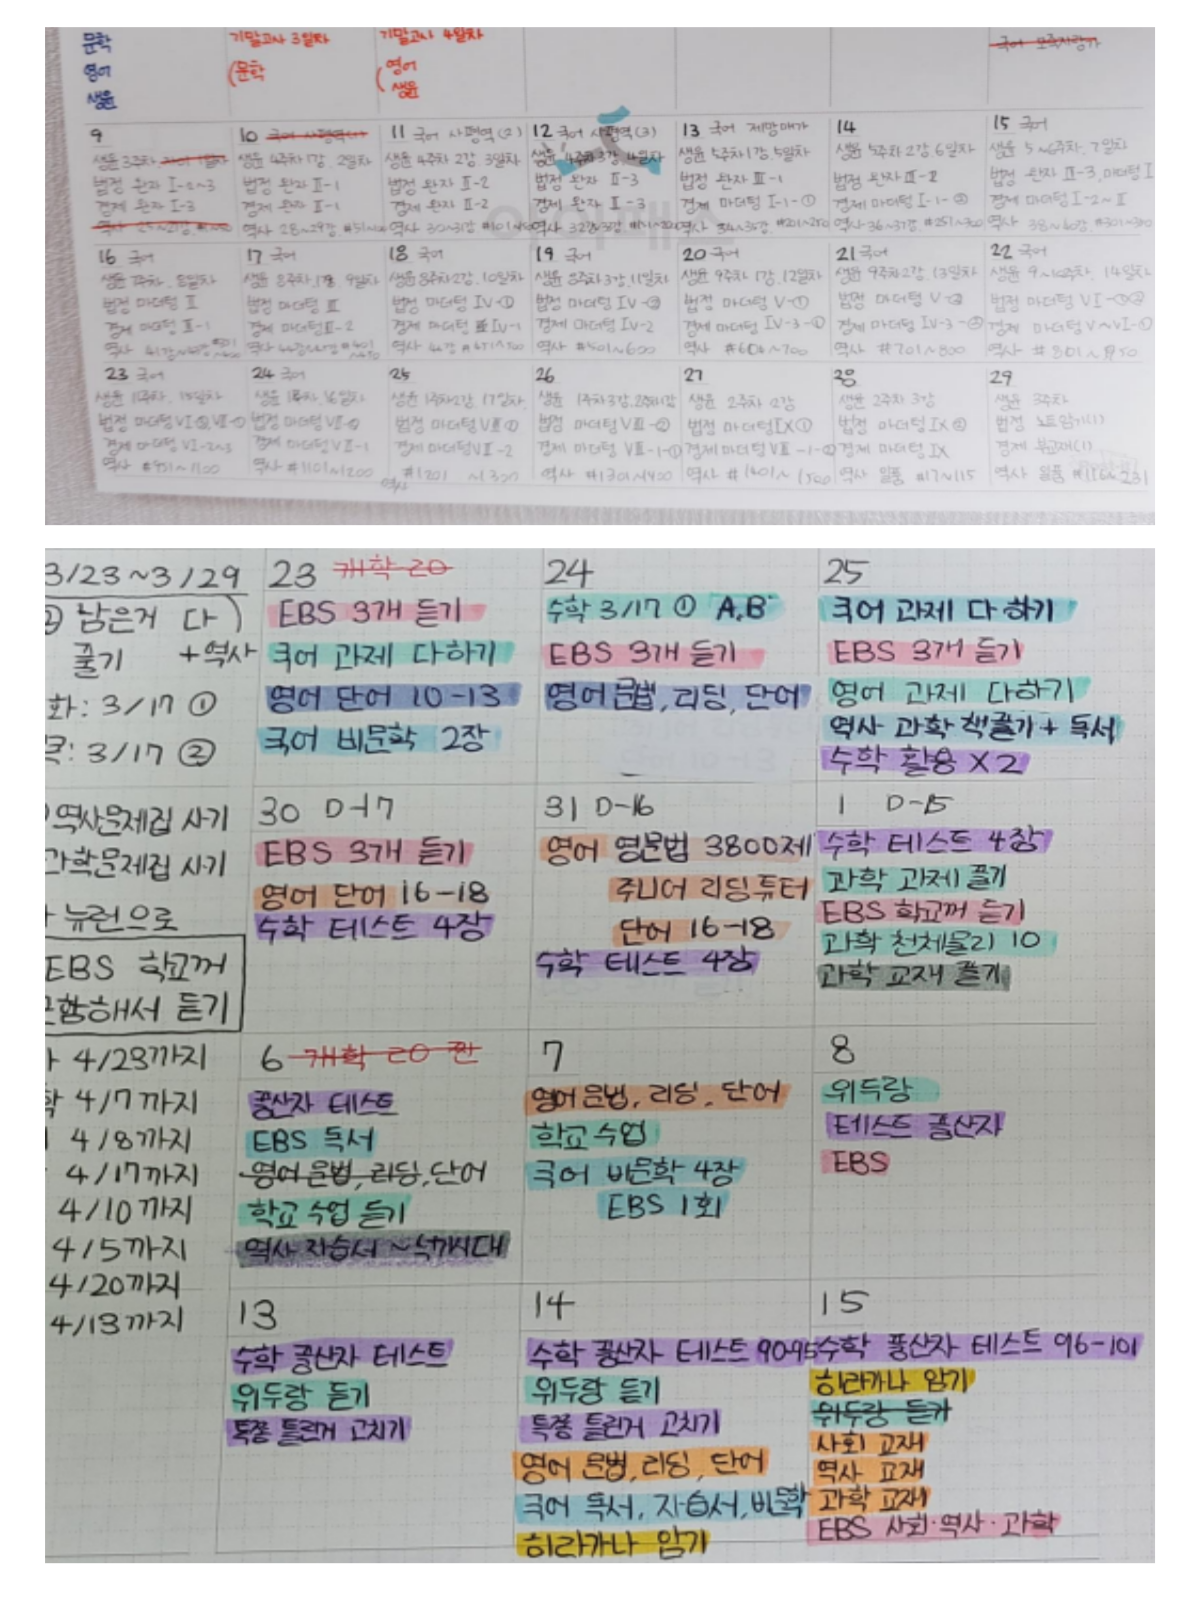 문학
영어
생윤
기말고사 3일차
(문학
기말고사 4일차
(영어
생윤
9
생윤 3주차
법정 완자 I-2~3
경제 완자 I-3
10 국어 사평역(1)
생윤 4주차 1강, 2일차
법정 완자 II-1
경제 완자 II-1
역사 28~29강,
11 국어 사평역(2)
생윤 4주차 2강, 3일차
법정 완자 II-2
경제 완자 II-2
역사 30~31강
12 국어 사평역(3)
생윤 4주차 3강, 4일차
법정 완자 II-3
경제 완자 II-3
역사 32강
13 국어 제망매가
생윤 5주차 1강, 5일차
법정 완자 III-1
경제 마더텅 I-1-①
역사 34~35강, #201~250
14
생윤 5주차 2강, 6일차
법정 완자 III-2
경제 마더텅 I-1-②
역사 36~37강, #251~300
15 국어
생윤 5~6주차, 7일차
법정 완자 III-3, 마더텅 I
경제 마더텅 I-2~II
역사 38~40강, #301~350
16 국어
생윤 7주차, 8일차
법정 마더텅 II
경제 마더텅 II-1
역사
17 국어
생윤 8주차 1강, 9일차
법정 마더텅 III
경제 마더텅 II-2
역사
18 국어
생윤 8주차 2강, 10일차
법정 마더텅 IV-①
경제 마더텅 IV-1
역사 46강 #451~500
19 국어
생윤 8주차 3강, 11일차
법정 마더텅 IV-②
경제 마더텅 IV-2
역사 #501~600
20 국어
생윤 9주차 1강, 12일차
법정 마더텅 V-①
경제 마더텅 IV-3-①
역사 #601~700
21 국어
생윤 9주차 2강, 13일차
법정 마더텅 V-②
경제 마더텅 IV-3-②
역사 #701~800
22 국어
생윤 9~10주차, 14일차
법정 마더텅 VI-①②
경제 마더텅 V~VI-①
역사 #801~950
23 국어
생윤 1주차, 15일차
법정 마더텅
경제 마더텅 VI-2~3
역사 #951~1100
24 국어
생윤 16일차
법정 마더텅
경제 마더텅 VII-1
역사 #1101~1200
25
생윤 1주차 2강, 17일차,
법정 마더텅
경제 마더텅 VII-2
역사 #1201 ~1300
26
생윤 1주차 3강, 2주차 1강
법정 마더텅 VIII-②
경제 마더텅 VIII-1-①
역사 #1301~1400
27
생윤 2주차 2강
법정 마더텅 IX①
경제 마더텅 VIII-1-②
역사 #1401~1500
28
생윤 2주차 3강
법정 마더텅 IX②
경제 마더텅 IX
역사 일품 #17~115
29
생윤 3주차
법정 노트암기(1)
경제 부교재(1)
역사 일품 #116~231
3/23~3/29
② 남은거 다)
풀기 +역사
화: 3/17 ①
3/17 ②
23 개학 20
EBS 3개 듣기
국어 과제 다하기
영어 단어 10-13
국어 비문학 2장
24
수학 3/17 ① A,B
EBS 3개 듣기
영어 문법, 리딩, 단어
25
국어 과제 다 하기
EBS 3개 듣기
영어 과제 다하기
역사 과학 책풀기 + 독서
수학 활용 X2
역사문제집 사기
과학문제집 사기
뉴런으로
EBS 학교꺼
포함해서 듣기
30 D-17
EBS 3개 듣기
영어 단어 16-18
수학 테스트 4장
31 D-16
영어 영문법 3800제
주니어 리딩튜터
단어 16-18
수학 테스트 4장
1 D-15
수학 테스트 4장
과학 과제 풀기
EBS 학교꺼 듣기
과학 천체물리 10
과학 교재 풀기
4/23까지
4/7까지
4/8까지
4/17까지
4/10까지
4/5까지
4/20까지
4/13까지
6 개학 20 찐
풍산자 테스트
EBS 독서
영어 문법, 리딩, 단어
학교 수업 듣기
역사 자습서 ~ 식기시대
7
영어 문법, 리딩, 단어
학교 수업
국어 비문학 4장
EBS 1회
8
위두랑
테스트 풍산자
EBS
13
수학 풍산자 테스트
위두랑 듣기
특쫑 틀린거 고치기
14
수학 풍산자 테스트 90-95
위두랑 듣기
특쫑 틀린거 고치기
영어 문법, 리딩, 단어
국어 독서, 자습서, 비문학
히라가나 암기
15
수학 풍산자 테스트 96-101
히라가나 암기
위두랑 듣기
사회 교재
역사 교재
과학 교재
EBS 사회·역사·과학